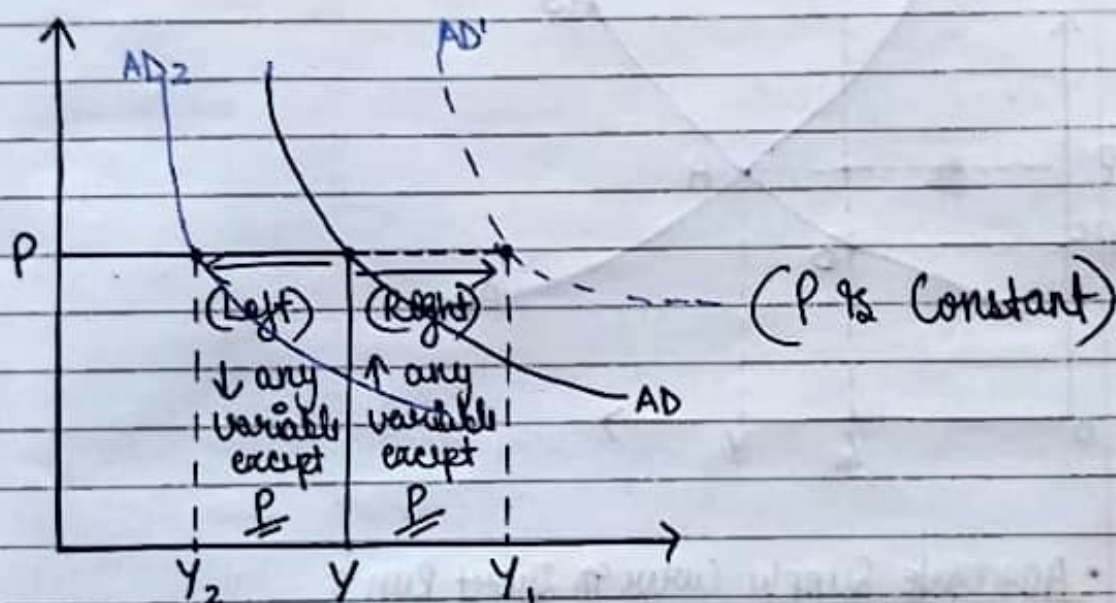 AD2
AD'
P
(Left)
(Right)
(P is Constant)
↓ any
variable
except
P
↑ any
variable
except
P
AD
Y2
Y
Y1